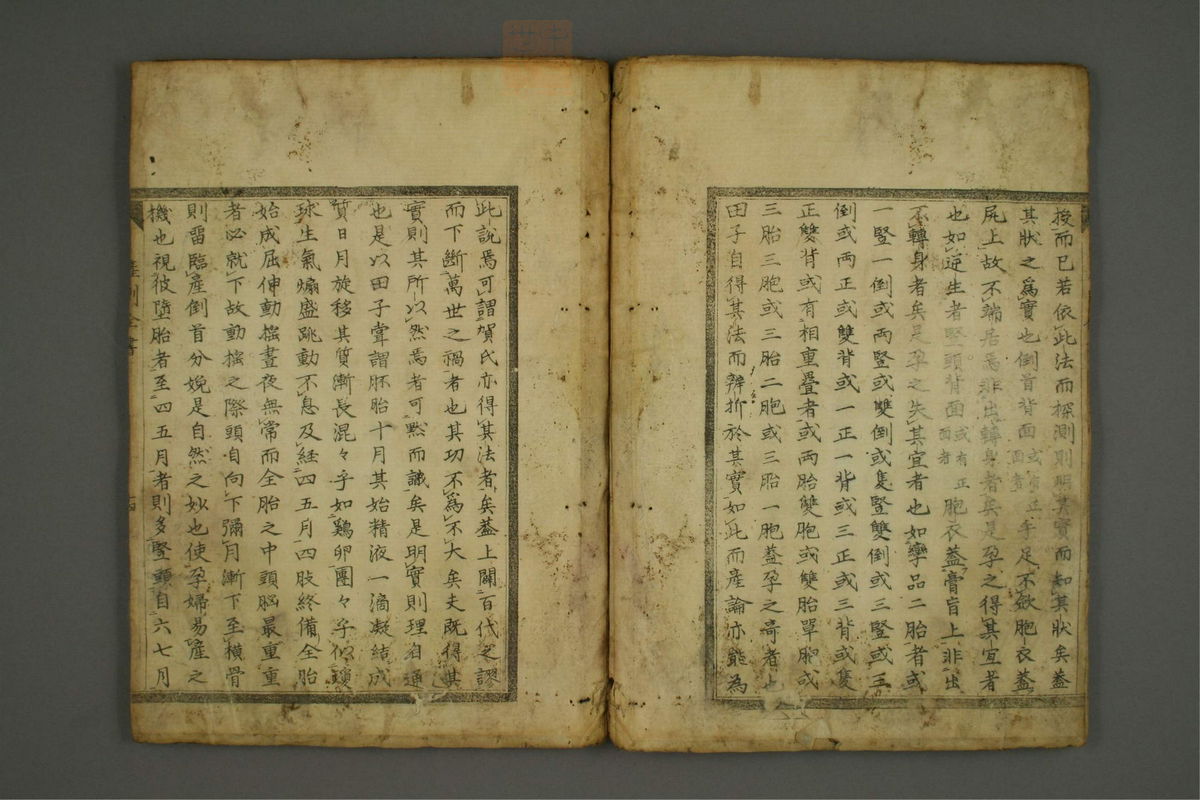 授而已若依此法而探測則明其實而知其狀矣蓋
其狀之爲實也倒首背面或有正面者手足不斂胞衣蓋
尻上故不端居焉非出轉身者矣是孕之得其宜者
也如逆生者竪頭背面或有正面者胞衣蓋膏肓上非出
不轉身者矣是孕之失其宜者也如孿品二胎者或
一竪一倒或兩竪或雙倒或隻竪雙倒或三竪或三
倒或兩正或雙背或一正一背或三正或三背或隻
正雙背或有相重疊者或兩胎雙胞或雙胎單胞或
三胎三胞或三胎二胞或三胎一胞蓋孕之奇者也
田子自得其法而辨折於其實如此而産論亦能為
此說焉可謂賀氏亦得其法者矣蓋上闢百代之謬
而下斷萬世之禍者也其功不爲不大矣夫既得其
實則其所以然焉者可默而識矣是明實則理自通
也是以田子嘗謂胚胎十月其始精液一滴凝結成
質日月旋移其質漸長混々乎如鷄卵團々乎似瓊
球生氣煽盛跳動不息及經四五月四肢終備全胎
始成屈伸動搖晝夜無常而全胎之中頭腦最重重
者必就下故動搖之際頭自向下彌月漸下至橫骨
則留臨産倒首分娩是自然之妙也使孕婦易産之
機也視彼墮胎者至四五月者則多竪頭自六七月